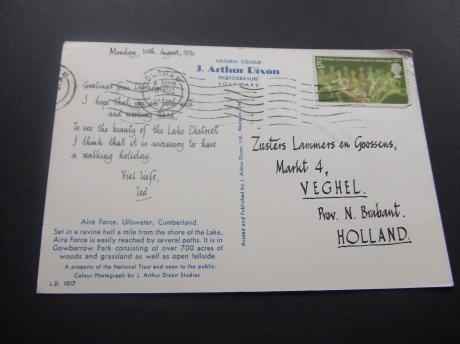 Monday, 10th August, 1970
NATURAL COLOUR
J. Arthur Dixon
PHOTOGRAVURE
POST CARD
5p
Greetings from
I hope that you are both well
and working hard.
To see the beauty of the Lake District
I think that it is necessary to have
a walking holiday.
Viel liefs,
Ted
Zusters Lammers en Goossens,
Markt 4,
VEGHEL.
Prov. N. Brabant.
HOLLAND.
Printed and Published by J. Arthur Dixon Ltd.
Aira Force, Ullswater, Cumberland.
Set in a ravine half a mile from the shore of the Lake,
Aira Force is easily reached by several paths. It is in
Gowbarrow Park consisting of over 700 acres of
woods and grassland as well as open fellside.
A property of the National Trust and open to the public.
Colour Photograph by J. Arthur Dixon Studios.
L.D. 1017